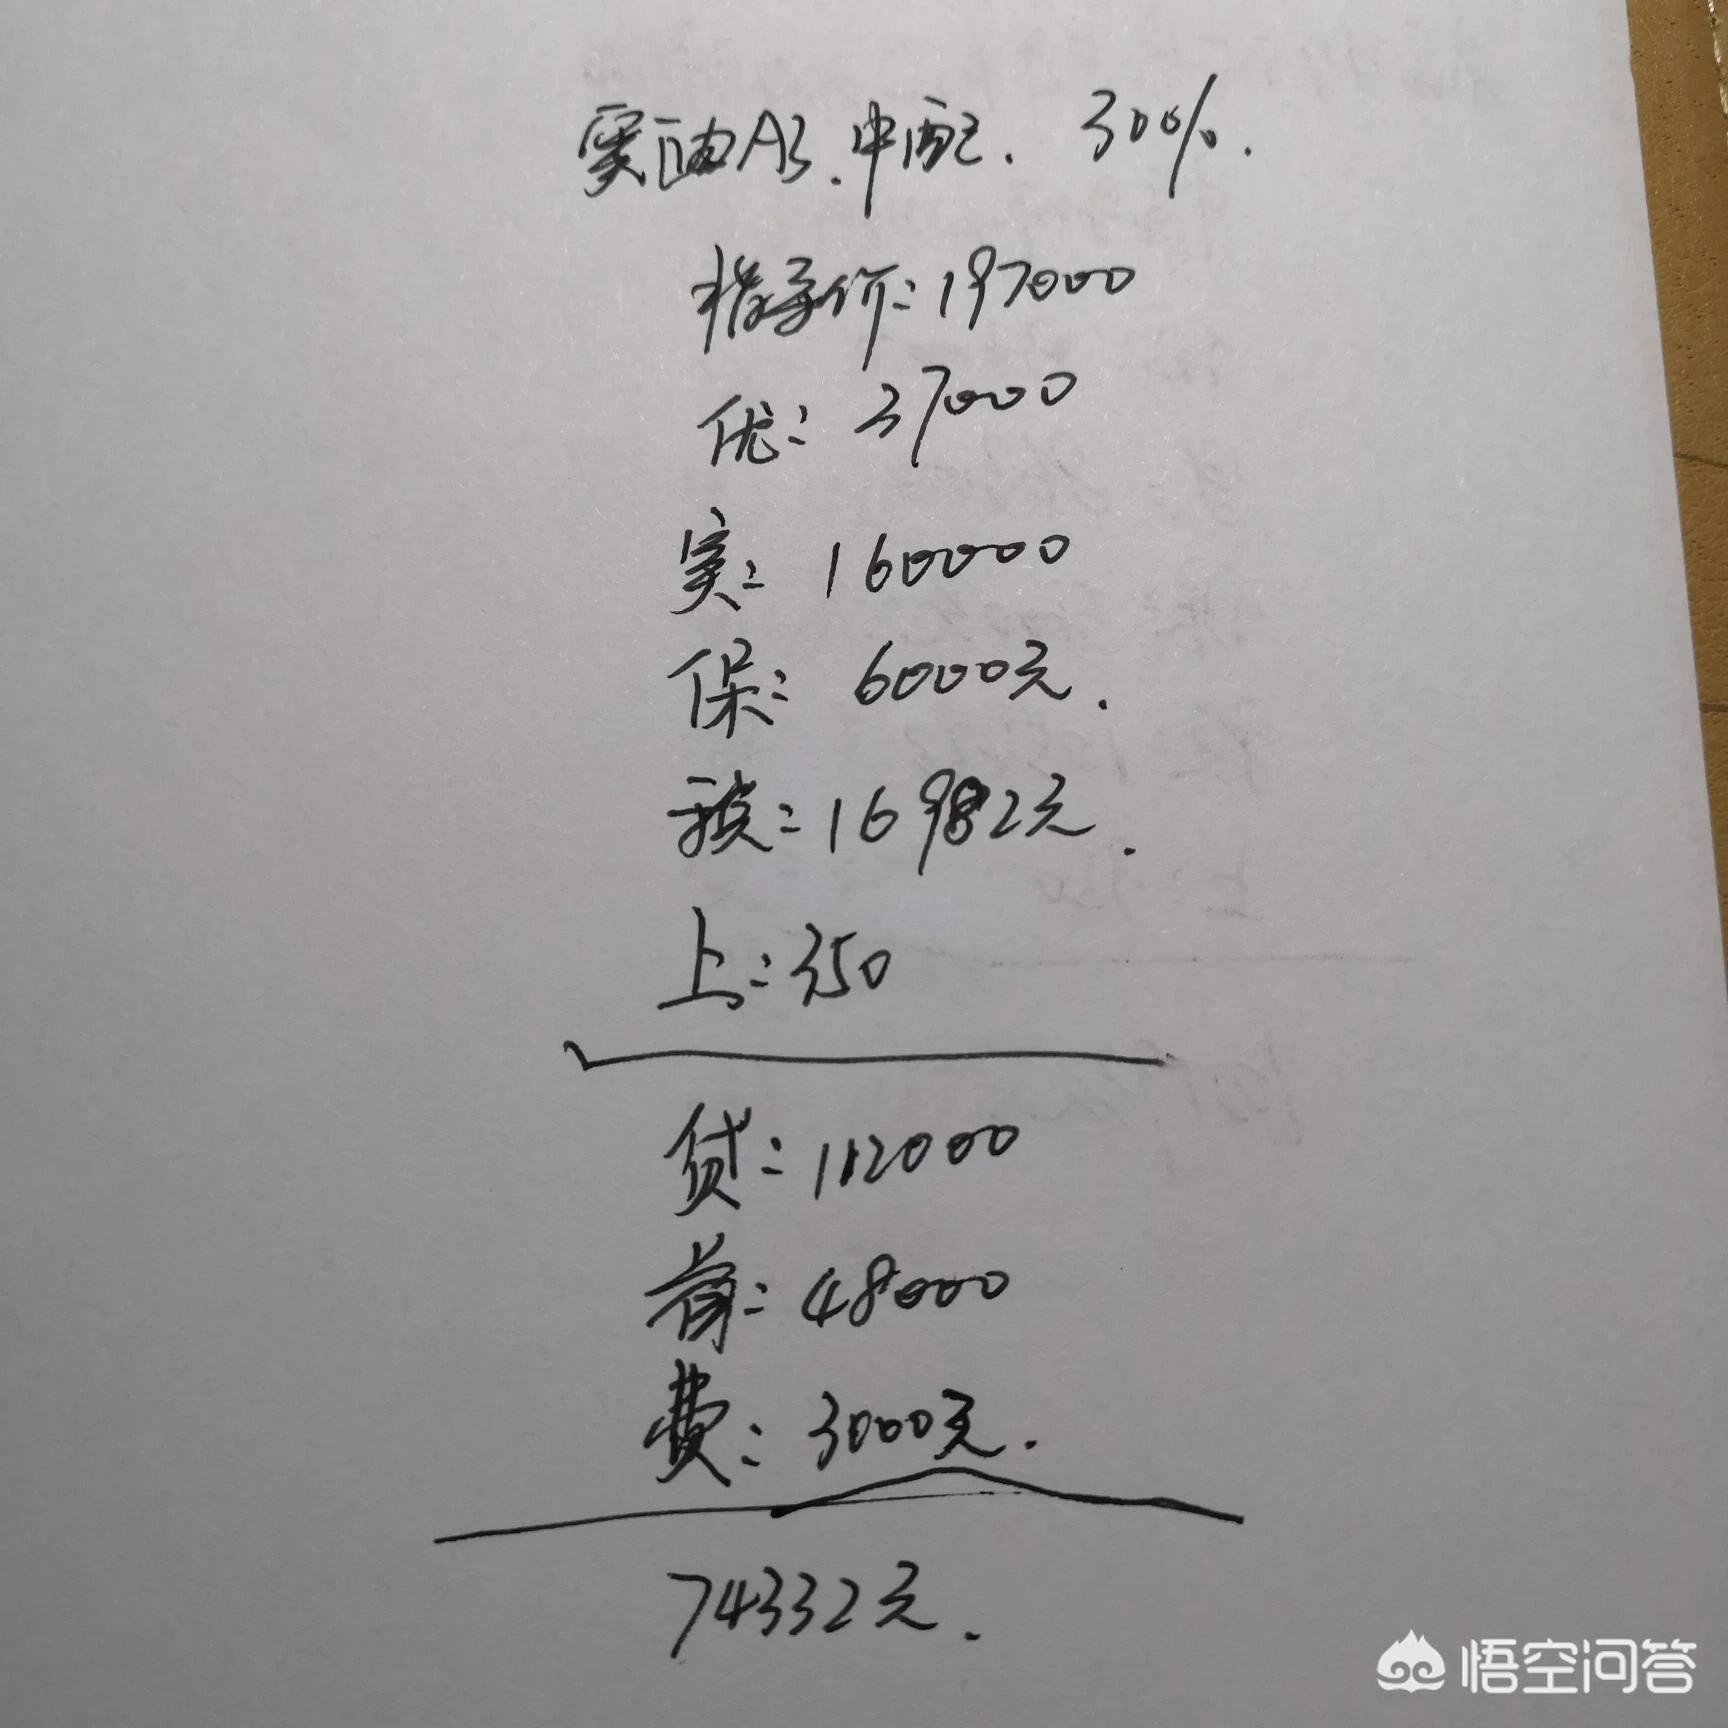 奥迪A3.中配. 30%.
指导价:197000
优:37000
实:160000
保:6000元.
税:16982元.
上:350
贷:112000
首:48000
费:3000元.
74332元.
悟空问答